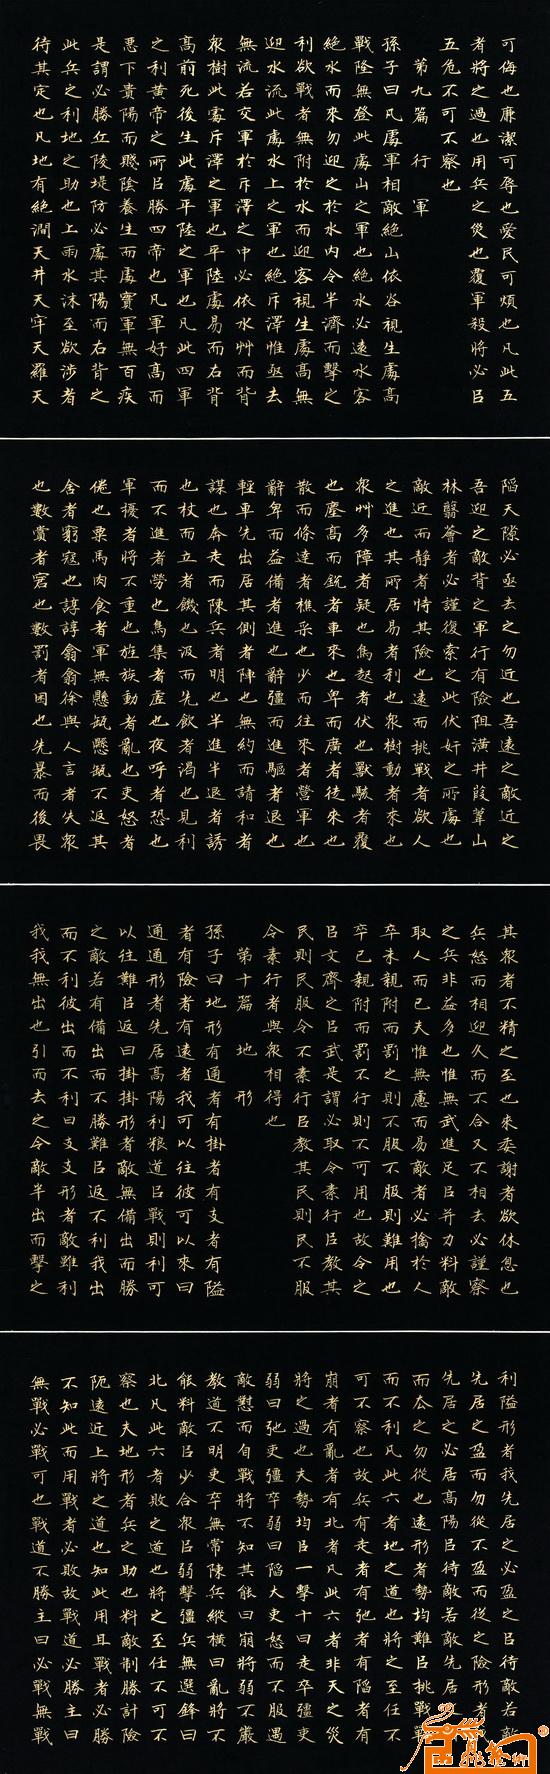 可侮也廉潔可辱也愛民可煩也凡此五
者將之過也用兵之災也覆軍殺將必㠯
五危不可不察也
第九篇 行軍
孫子曰凡處軍相敵絕山依谷視生處高
戰隆無登此處山之軍也絕水必遠水客
絕水而來勿迎之於水內令半濟而擊之
利欲戰者無附於水而迎客視生處高無
迎水流此處水上之軍也絕斥澤惟亟去
無流若交軍於斥澤之中必依水艸而背
眾樹此處斥澤之軍也平陸處易而右背
高前死後生此處平陸之軍也凡此四軍
之利黃帝之所㠯勝四帝也凡軍好高而
惡下貴陽而賤陰養生而處實軍無百疾
是謂必勝丘陵堤防必處其陽而右背之
此兵之利地之助也上雨水沫至欲涉者
待其定也凡地有絕澗天井天牢天羅天
陷天隙必亟去之勿近也吾遠之敵近之
吾迎之敵背之軍行有險阻潢井葭葦山
林翳薈者必謹復索之此伏奸之所處也
敵近而靜者恃其險也遠而挑戰者欲人
之進也其所居易者利也眾樹動者來也
眾艸多障者疑也鳥起者伏也獸駭者覆
也塵高而銳者車來也卑而廣者徒來也
散而條達者樵采也少而往來者營軍也
辭卑而益備者進也辭彊而進驅者退也
輕車先出居其側者陣也無約而請和者
謀也奔走而陳兵者明也半進半退者誘
也杖而立者饑也汲而先飲者渴也見利
而不進者勞也鳥集者虛也夜呼者恐也
軍擾者將不重也旌旗動者亂也吏怒者
倦也粟馬肉食者軍無懸缻懸缻不返其
舍者窮寇也諄諄翕翕徐與人言者失眾
也數賞者窘也數罰者困也先暴而後畏
其眾者不精之至也來委謝者欲休息也
兵怒而相迎久而不合又不相去必謹察
之兵非益多也惟無武進足㠯并力料敵
取人而已夫惟無慮而易敵者必擒於人
卒未親附而罰之則不服不服則難用也
卒已親附而罰不行則不可用也故令之
㠯文齊之㠯武是謂必取令素行㠯教其
民則民服令不素行㠯教其民則民不服
令素行者與眾相得也
第十篇 地形
孫子曰地形有通者有掛者有支者有隘
者有險者有遠者我可以往彼可以來曰
通通形者先居高陽利粮道㠯戰則利可
以往難㠯返曰掛掛形者敵無備出而勝
之敵若有備出而不勝難㠯返不利我出
而不利彼出而不利曰支支形者敵雖利
我我無出也引而去之令敵半出而擊之
利隘形者我先居之必盈之㠯待敵若敵
先居之盈而勿從不盈而從之險形者我
先居之必居高陽㠯待敵若敵先居之引
而去之勿從也遠形者勢均難㠯挑戰戰
而不利凡此六者地之道也將之至任不
可不察也故兵有走者有弛者有陷者有
崩者有亂者有北者凡此六者非天之災
將之過也夫勢均㠯一擊十曰走卒彊吏
弱曰弛吏彊卒弱曰陷大吏怒而不服遇
敵懟而自戰將不知其能曰崩將弱不嚴
教道不明吏卒無常陳兵縱橫曰亂將不
能料敵㠯少合眾㠯弱擊彊兵無選鋒曰
北凡此六者敗之道也將之至任不可不
察也夫地形者兵之助也料敵制勝計險
阨遠近上將之道也知此用且戰者必勝
不知此而用戰者必敗故戰道必勝主曰
無戰必戰可也戰道不勝主曰必戰無戰